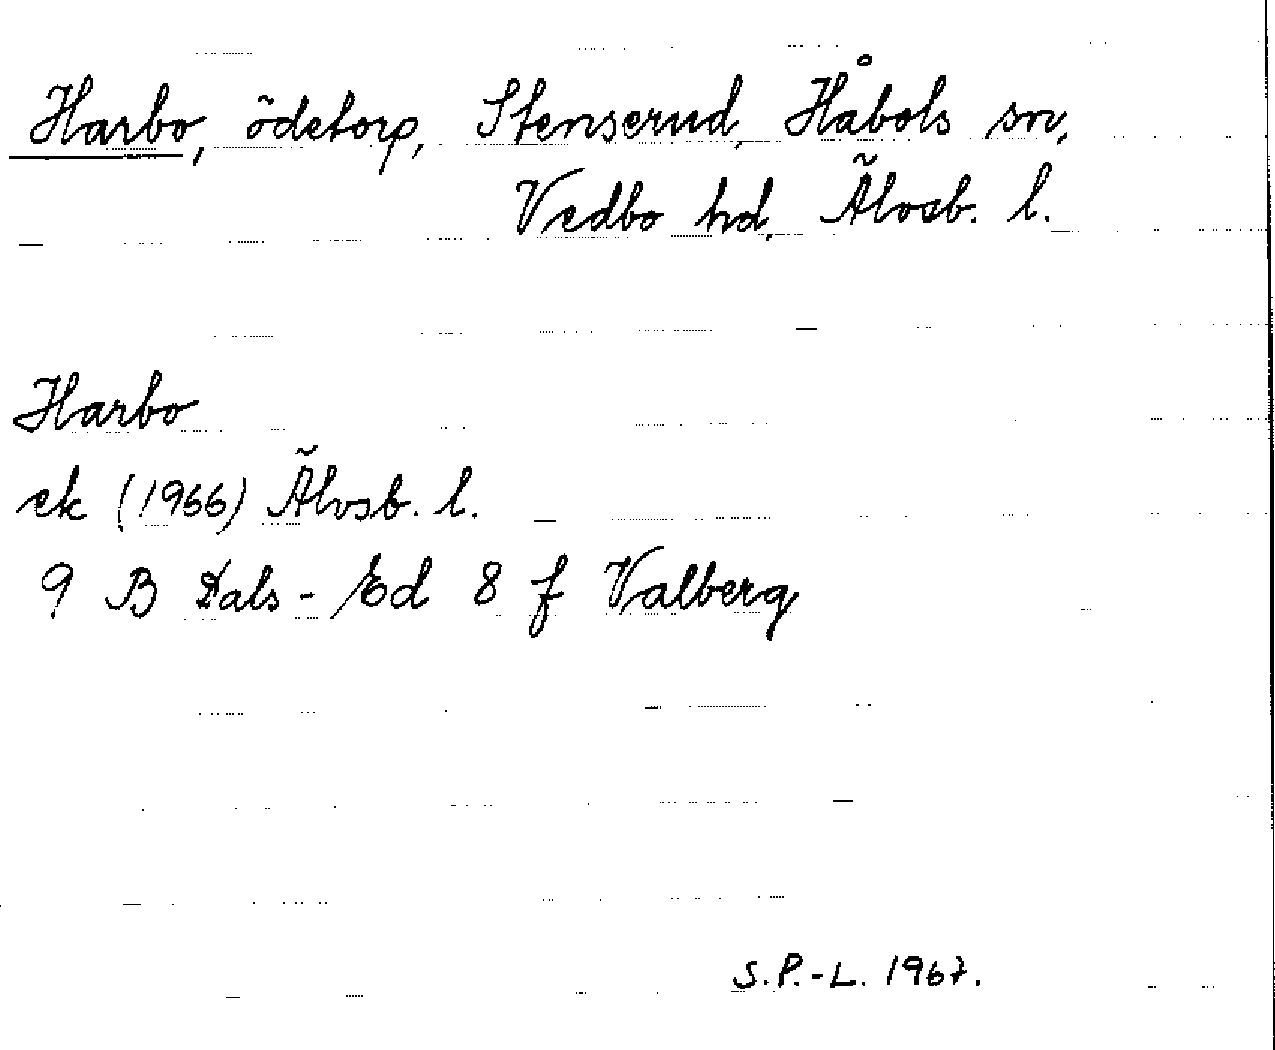 Harbo, ödetorp, Stenserud, Håbols sn,
Vedbo hd, Älvsb. l.
Harbo
ek (1966) Älvsb. l.
9 B Dals-Ed 8 f Valberg
S.P.-L. 1967.